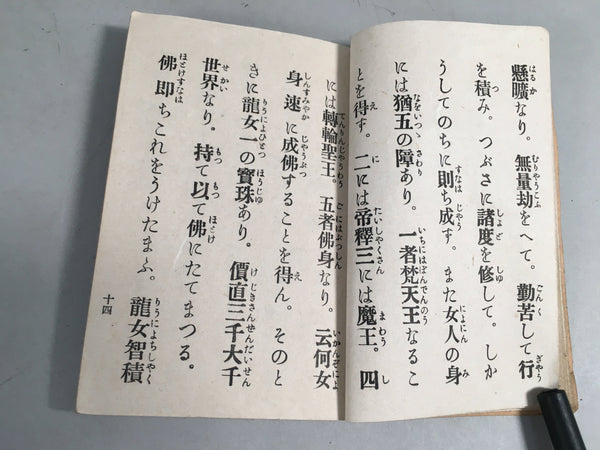 懸曠なり。無量劫をへて。勤苦して行
を積み。つぶさに諸度を修して。しか
うしてのちに則ち成す。また女人の身
には猶五の障あり。一者梵天王なるこ
とを得す。二には帝釋三には魔王。四
には轉輪聖王。五者佛身なり。云何女
身速に成佛することを得ん。そのと
きに龍女一の寶珠あり。價直三千大千
世界なり。持て以て佛にたてまつる。
佛即ちこれをうけたまふ。龍女智積
十四